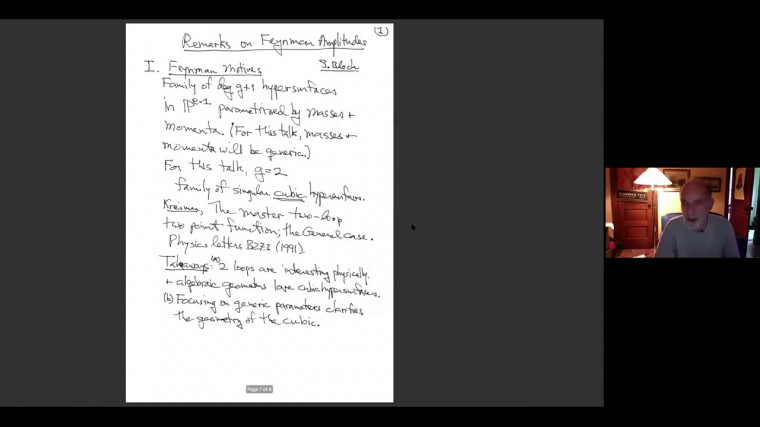 ①
Remarks on Feynman Amplitudes
S. Bloch
I. Feynman Motives
Family of deg g+1 hypersurfaces
in P^{e-1} parametrized by masses +
momenta. (For this talk, masses +
momenta will be generic.)
For this talk, g=2
family of singular cubic hypersurfaces.
Kreimer, The master two-loop
two point function; the General case.
Physics letters B273 (1991).
Takeaways: (a) 2 loops are interesting physically
+ algebraic geometers love cubic hypersurfaces.
(b) Focusing on generic parameters clarifies
the geometry of the cubic.
Page 1 of 8